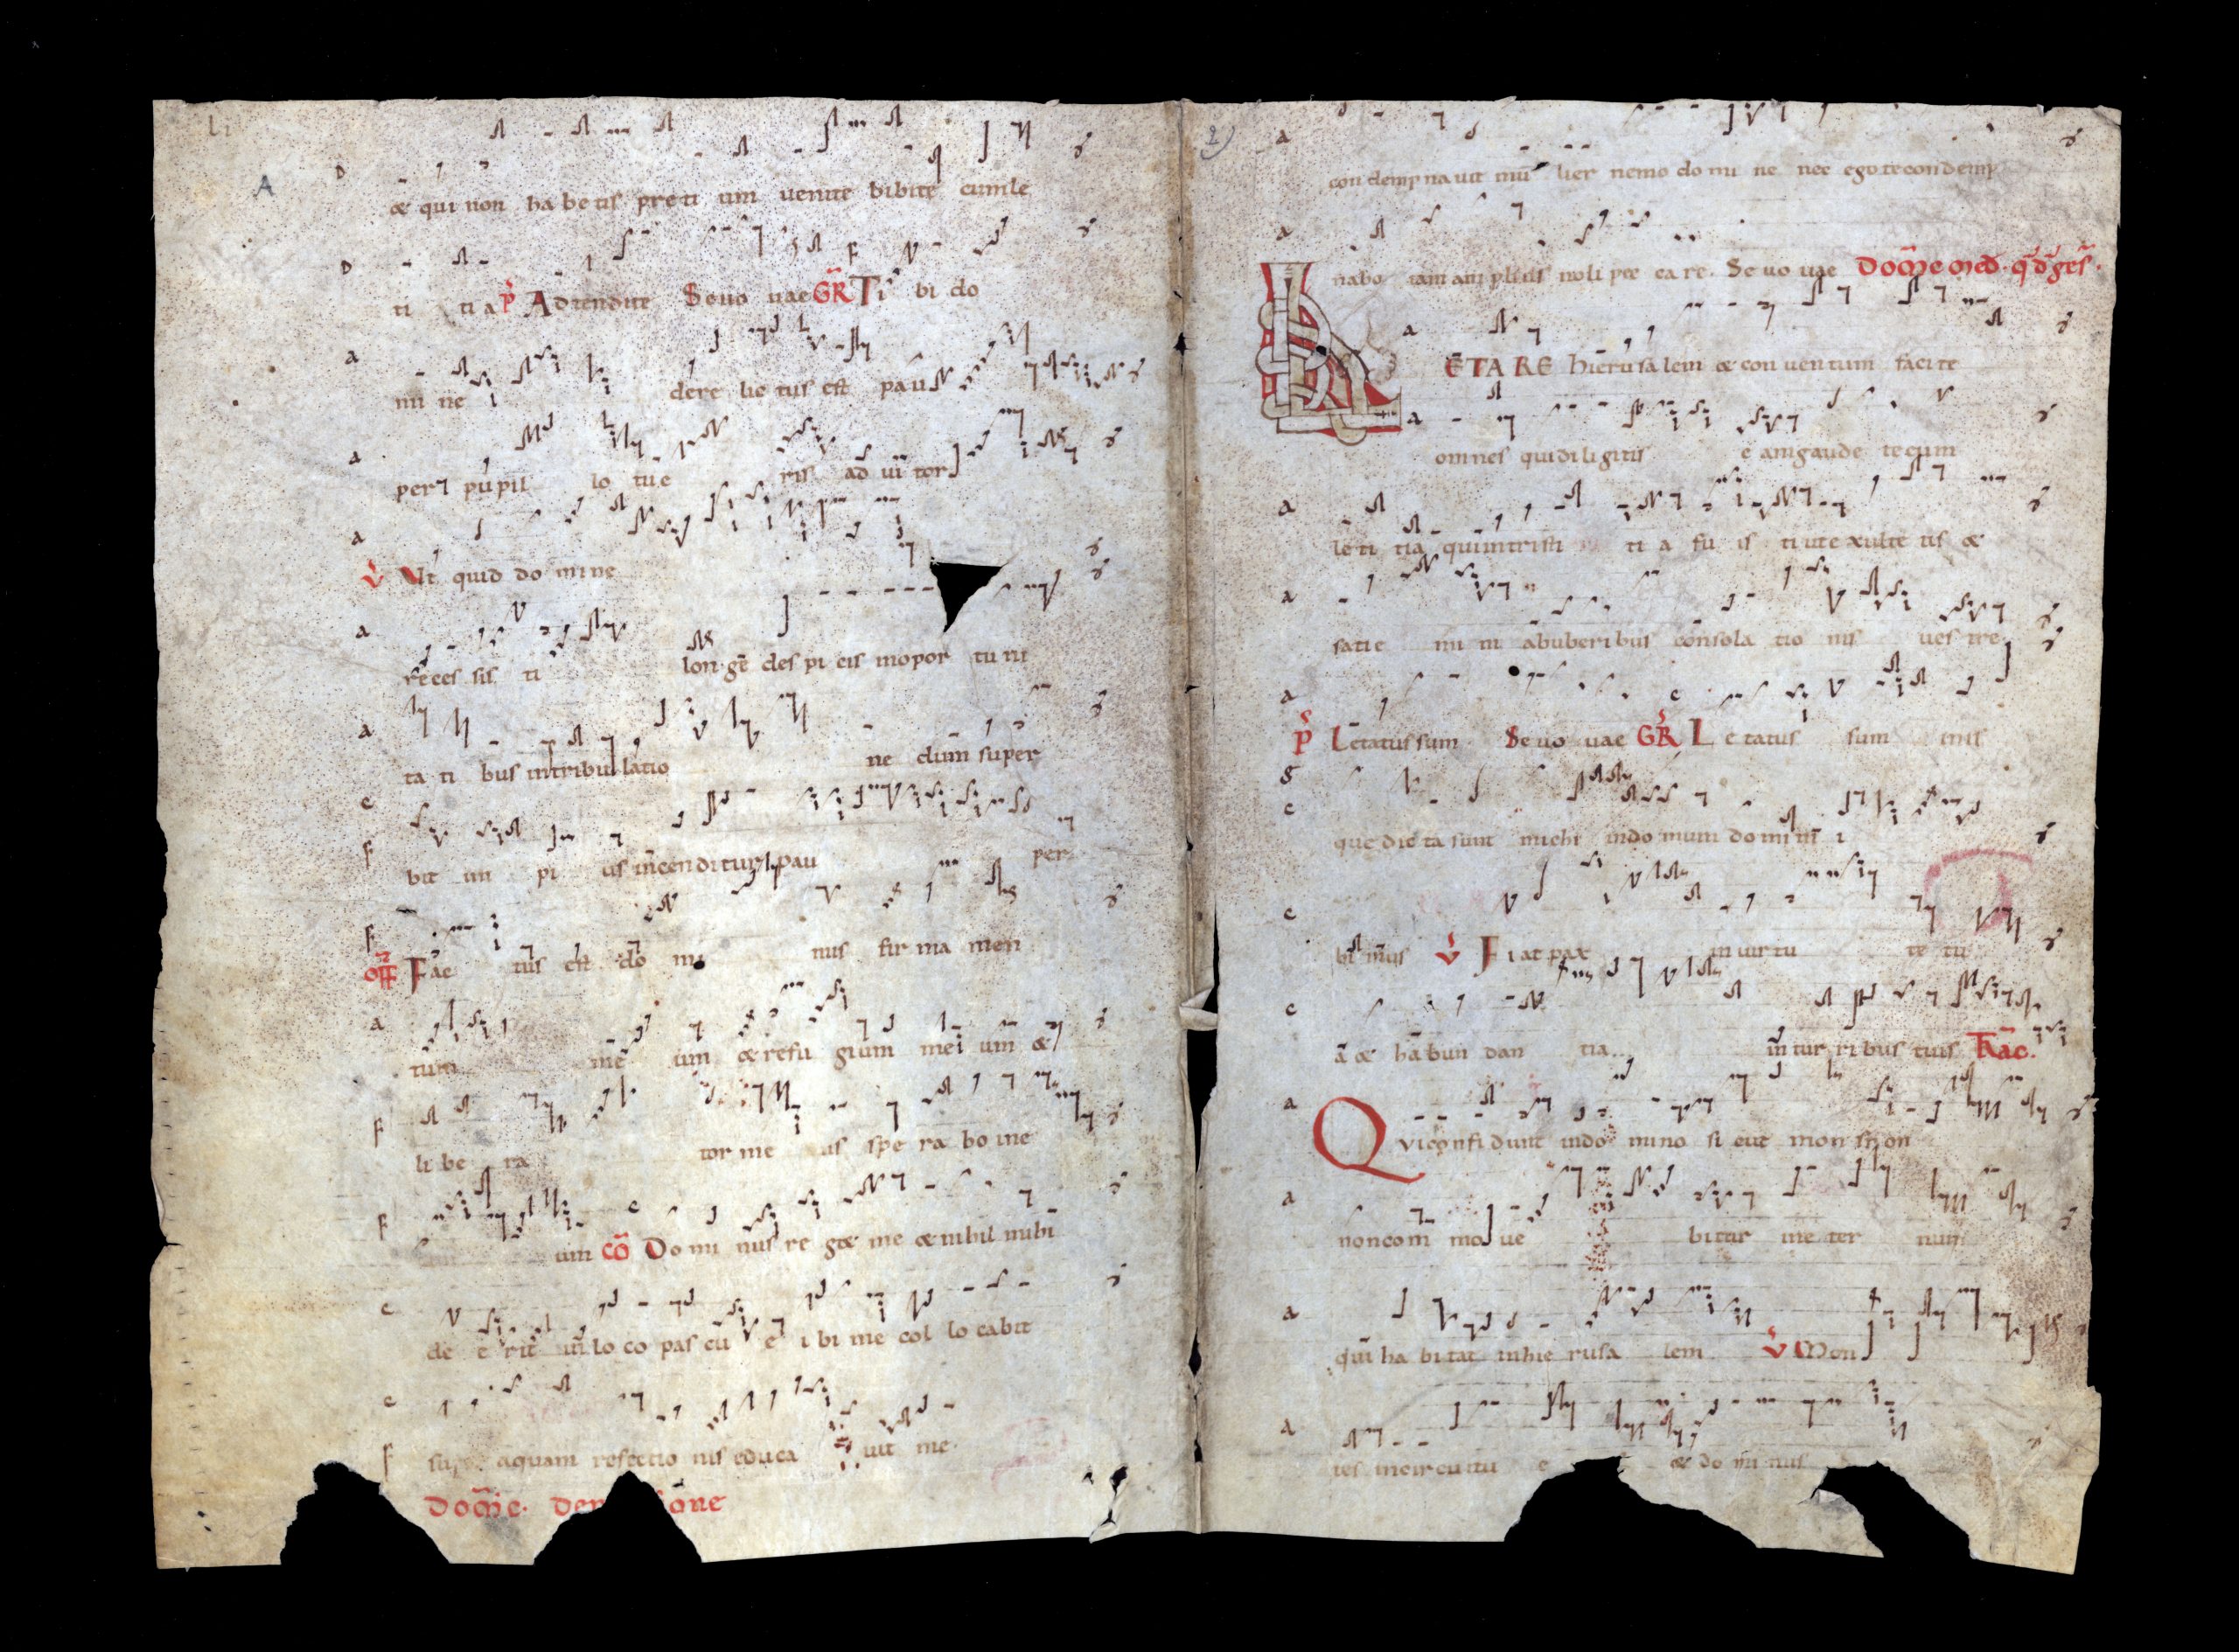 A
æ qui non ha be tis preti um uenite bibite cumle
ti ti a p̃ Adtendite Seuo uae GR Ti bi do
mi ne dere lic tus est pau
per pu pil lo tu e ris ad iu tor
V̓ Vt quid do mine
re ces sis ti lon ge des pi cis inopor tu ni
ta ti bus intribu latio ne dum super
bit im pi us incenditur pau per
OFF Fac tus est do mi nus fir ma men
tum me um æ refu gium me um æ
li be ra tor me us spe ra bo in e
um CÕ Do mi nus re git me æ nihil michi
de e rit in lo co pas cu e i bi me col lo cabit
super aquam refectio nis educa uit me.
condempnauit mu lier nemo do mi ne nec ego te condemp
nabo iam am plius noli pec ca re. Seuo uae DOM̃C MED. q̃dg̃es.
LETARE hierusa lem æ con uen tum faci te
omnes quidiligitis e amgaude te cum
le ti tia quiintristi ti a fu is ti ut exulte tis æ
satie mi ni abuberibus consola tio nis ues tre
p̃ Letatus sum Seuo uae GR Le tatus sum inis
que dicta sunt michi indo mum do mi ni i
bi mus V̓ Fiat pax in uirtu te tu
a æ habun dan tia in tur ribus tuis TRAC.
Qviconfidunt indo mino si cut mon syon
noncom mo ue bitur ine ter num
qui ha bi tat inhie rusa lem V̓ Mon
tes incircuitu e æ do mi nus